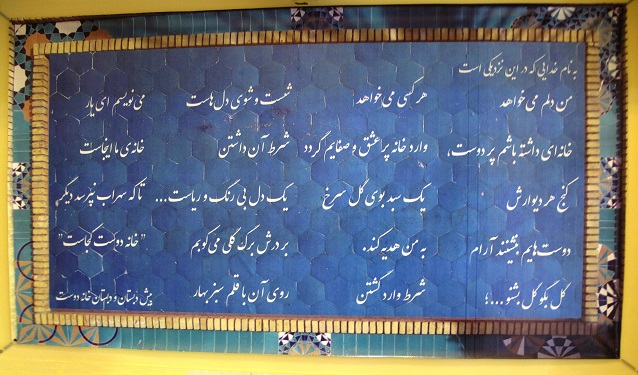 به نام خدایی که در این نزدیکی است
من دلم می‌خواهد
خانه‌ای داشته باشم پر دوست،
کنج هر دیوارش
دوست‌هایم بنشینند آرام
گل بگو گل بشنو...؛
هر کسی می‌خواهد
وارد خانه پر عشق و صفایم گردد
یک سبد بوی گل سرخ
به من هدیه کند.
شرط وارد گشتن
شست و شوی دل‌هاست
شرط آن داشتن
یک دل بی رنگ و ریاست...
بر درش برگ گلی می‌کوبم
روی آن با قلم سبز بهار
می‌نویسم ای یار
خانه‌ی ما اینجاست
تا که سهراب نپرسد دیگر
"خانه دوست کجاست"
پیش دبستان و دبستان خانه دوست